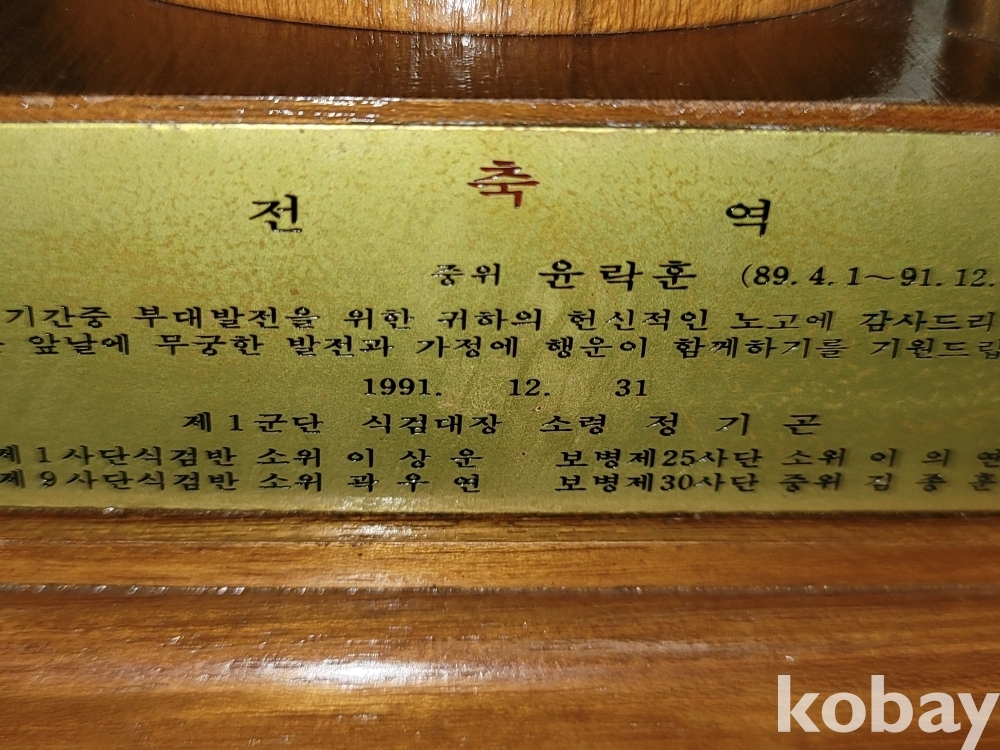 축
전 역
중위 윤락훈 (89.4.1~91.12.
기간중 부대발전을 위한 귀하의 헌신적인 노고에 감사드리
앞날에 무궁한 발전과 가정에 행운이 함께하기를 기원드립
1991. 12. 31
제1군단 식검대장 소령 정기곤
제1사단식검반 소위 이상운 보병제25사단 소위 이의연
제9사단식검반 소위 곽우연 보병제30사단 중위 김종훈
kobay